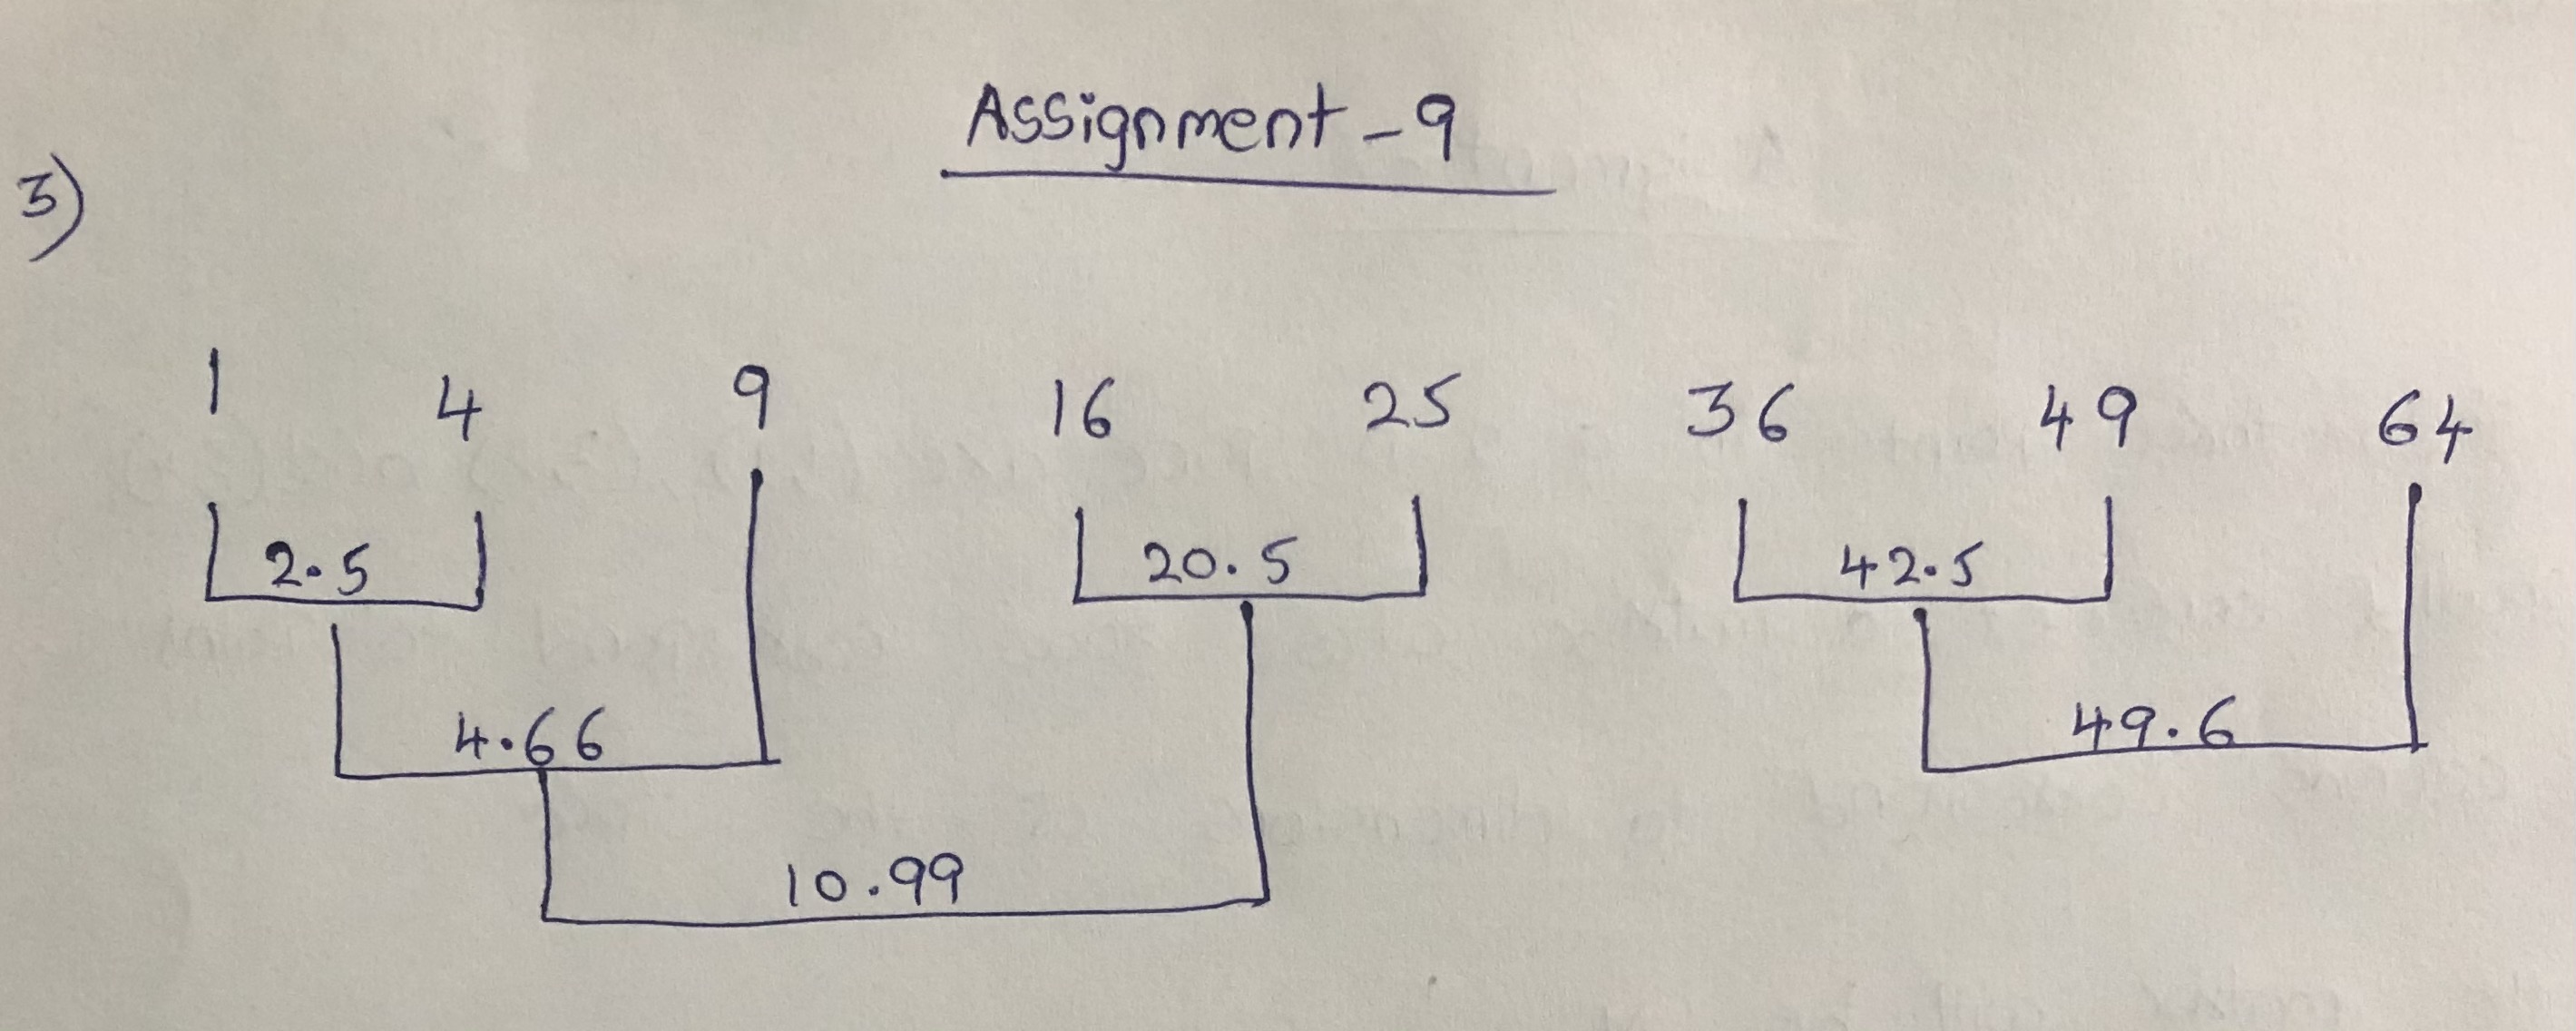 Assignment-9
3)
1 4 9 16 25 36 49 64
2.5 20.5 42.5
4.66 49.6
10.99